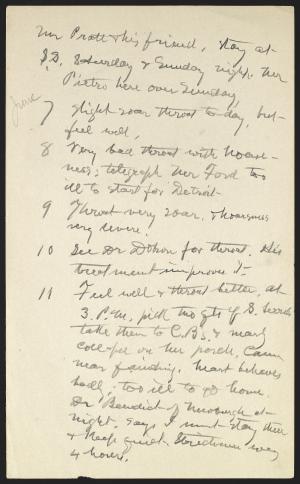 Mr Pratt & his friend, stay at
S.S. Saturday & Sunday night. Mr
Pietro here over Sunday
June
7 slight soar throat to-day, but
feel well,
8 Very bad throat with hoarse-
ness; telegraph Mr Ford too
ill to start for Detroit
9 Throat very soar, & hoarsness
very severe.
10 See Dr for throat. His
treatment improve it
11 Feel well & throat better, at
3. P.M. pick two qts of S.
take them to C.B.s. & nearly
collapse on her porch, Came
near fainting. Heart behaves
badly; too ill to go home.
Dr Benedict of Newburgh at
night, says I must stay there
& keep quiet. very
4 hours.